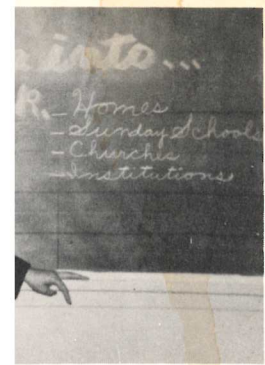 into...
R. - Homes
- Sunday Schools
- Churches
- Institutions